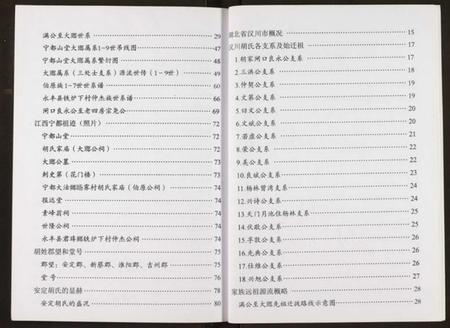 满公至大郎世系 29
宁都山堂大郎属系1-9世吊线图 47
宁都山堂大郎属系繁衍图 48
大郎属系（三处士支系）源流世传（1-9世） 49
伯原族1-7世世系谱 60
永丰县铁炉下村仲杰族世系谱 66
闸口良永公至老四房宗尧公 69
江西宁都祖迹（照片） 72
宁都山堂 72
胡氏家庙（大郎公祠） 72
大郎公墓 73
刺史第（花门楼） 73
村胡氏家庙（伯原公祠） 74
祖远堂 74
素峰翁祠 74
世隆公祠 74
永丰县君埠镇铁炉下村仲杰公祠 74
胡姓郡望和堂号 75
郡望：安定郡、新蔡郡、淮阳郡、吉州郡 75
堂号 76
安定胡氏的显赫 78
安定胡氏的盛况 80
湖北省汉川市概况 15
汉川胡氏各支系及始迁祖 17
1.胡家闸口良永公支系 17
2.三洪公支系 17
3.仲契公支系 17
4.文募公支系 18
5.曰文公支系 20
6.文斌公支系 20
7.若虚公支系 21
8.荣公支系 22
9.英公支系 22
10.良斌公支系 23
11.杨林曾湾支系 24
12.兴诗公支系 24
13.天门月池垸杨林支系 25
14.伏敬公支系 25
15.孚敦公支系 26
16.光典公支系 26
17.佳维公支系 27
18.兴旭公支系 27
家族远祖源流概略 28
满公至大郎先祖迁徙路线示意图 28